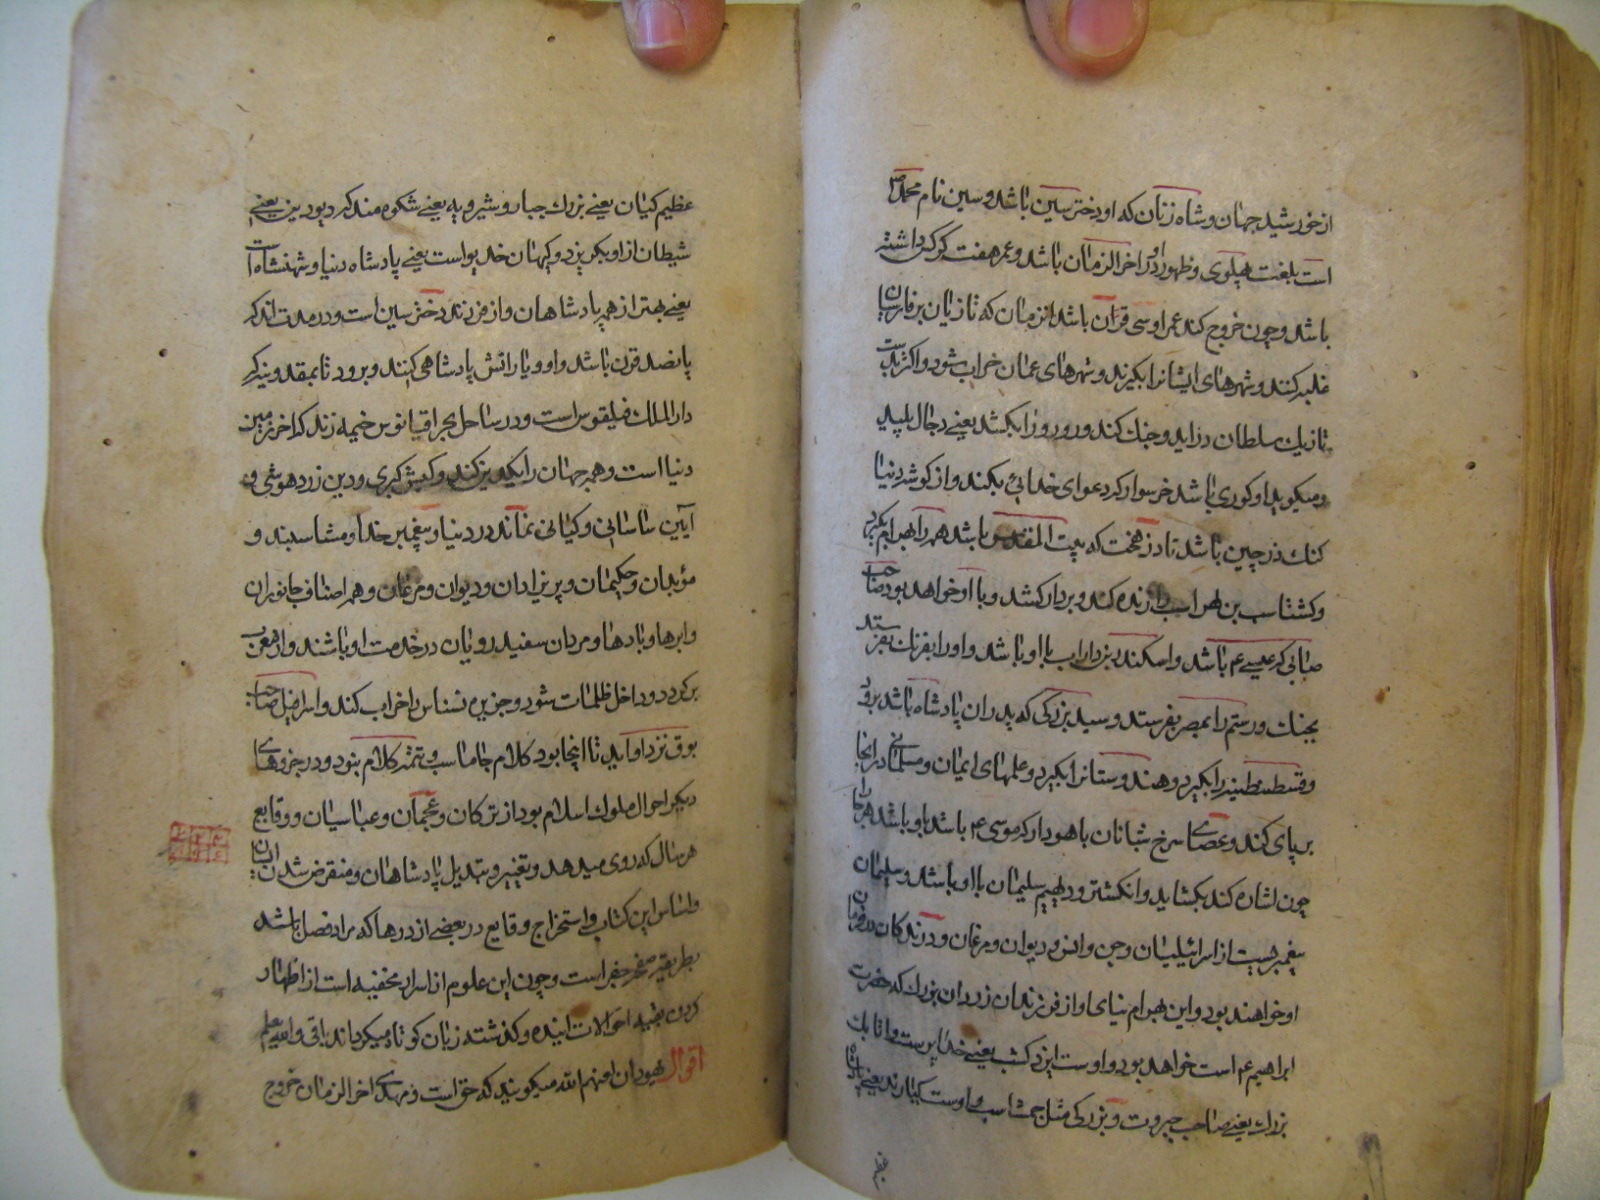 از خورشید جهان و شاه زنان که او دختر سین باشد و سین نام محمد ص
است بلغت پهلوی و ظهور او در اخر الزمان باشد و عمر هفت کرکس داشته
باشد و چون خروج کند عمر او سی قران باشد انزمان که تازیان بر فارسیان
غلبه کنند و شهرهای ایشانرا بگیرند و شهرهای عمان خراب شود و اکثر بدست
تازیک سلطان دراید و جنك کند و رورور را بکشد یعنی دجال پلید
و میگوید او کوری باشد خر سوار که دعوای خدائی بکند و از کوشه دنیا
کنك در چین باشد تا دز هخت که بیت المقدس باشد همه را بهرام بگیرد
و کشتاسب بن لهراسب را زنده کند و بردار کشد و با او خواهد بود صاحب
صبائی که عیسی عم باشد و اسکندر بن داراب با او باشد و او را بفرنك بفرستد
بجنك و رستم را بمصر بفرستد و سید بزرکی که پدران پادشاه باشد برود
و قسطنطنیه را بگیرد و هندوستانرا بگیرد و علمهای ایمان و مسلمانی در انجا
بر پای کند و عصای سرخ شبانان باهودار که موسی عم باشد با و باشد هرجا را
چون اشاره کند بکشاید و انکشتر و دیهیم سلیمان با او باشد و سلیمان
پیغمبریست از اسرائیلیان و جن و انس و دیوان و مرغان و درندکان در فرمان
او خواهند بود و این بهرام بنیای او از فرزندان زردان بزرك که حضرت
ابراهیم عم است خواهد بود و اوست ایزد کشب یعنی خدا پرست و اتابك
بزرك یعنی صاحب جبروت و بزرکی مثل جمشاسب و اوست کیارند یعنی پادشاه
عظیم
عظیم کیان یعنی بزرك جبار و شیرویه یعنی شکوه مند که دیو دین یعنی
شیطان از او بکریزد و کیهان خدیو است یعنی پادشاه دنیا و شهنشاه است
یعنی بهتر از همه پادشاهان و از فرزند دختر سین است و در مدت اندکه
پانصد قرن باشد او و یارانش پادشاهی کنند و برود تا بمقدونیه که
دار الملك فیلقوس است و در ساحل بحر اقیانوس خیمه زند که اخر زمین
دنیا است و همه جهان را یکدین کند و کیش کبری و دین زردهوشی و
آیین ساسانی و کیانی نماند در دنیا و پیغمبر خدا و مشاسبند و
مؤبدان و حکیمان و پریزادان و دیوان و مرغان و همه اصناف جانوران
و ابرها و بادها و مردان سفید رویان در خدمت او باشند و از مغرب
بر کردد و داخل ظلمات شود و جزیره نسناس را خراب کند و اسرافیل صاحب
بوق نزد او اید تا اینجا بود کلام جاماسب و تتمه کلام بنود و در جزوهای
دیگر احوال ملوك اسلام بود از ترکان و عجمان و عباسیان و وقایع
هر سال که روی میدهد و تغییر و تبدیل پادشاهان و منقرض شدن ایشان
و اساس این کتاب و استخراج وقایع در بعضی از درها که مراد فصل باشد
بطریقه صفحه جفر است و چون این علوم از اسرار مخفیه است از اظهار
کردن بقیه احوالات اینده و کذشته زبان کوتاه میکرداند باقی والله یعلم
اقوال یهودان امنهم الله میکویند که حق است و مهدی اخر الزمان خروج